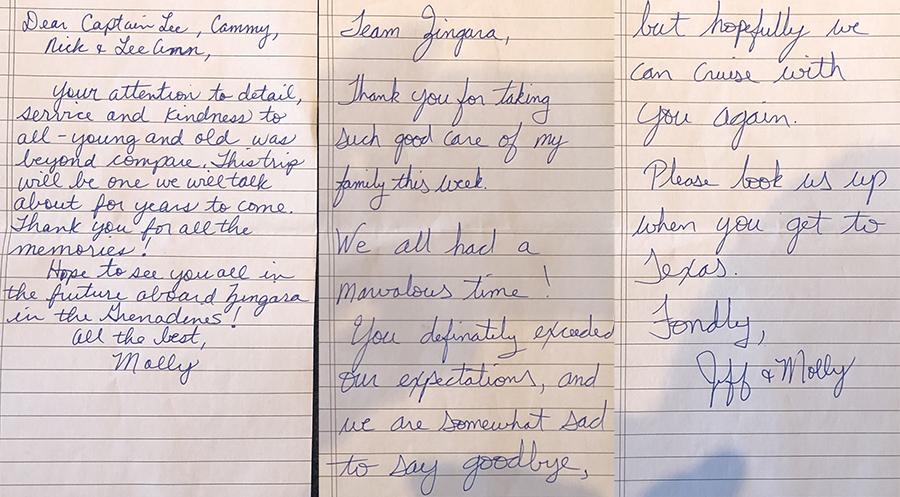 Dear Captain Lee, Cammy,
Nick & LeeAnn,
Your attention to detail,
service and kindness to
all - young and old was
beyond compare. This trip
will be one we will talk
about for years to come.
Thank you for all the
memories!
Hope to see you all in
the future aboard Zingara
in the Grenadines!
All the best,
Molly
Team Zingara,
Thank you for taking
such good care of my
family this week.
We all had a
marvalous time!
You definately exceeded
our expectations, and
we are somewhat sad
to say goodbye,
but hopefully we
can cruise with
you again.
Please look us up
when you get to
Texas.
Fondly,
Jeff & Molly